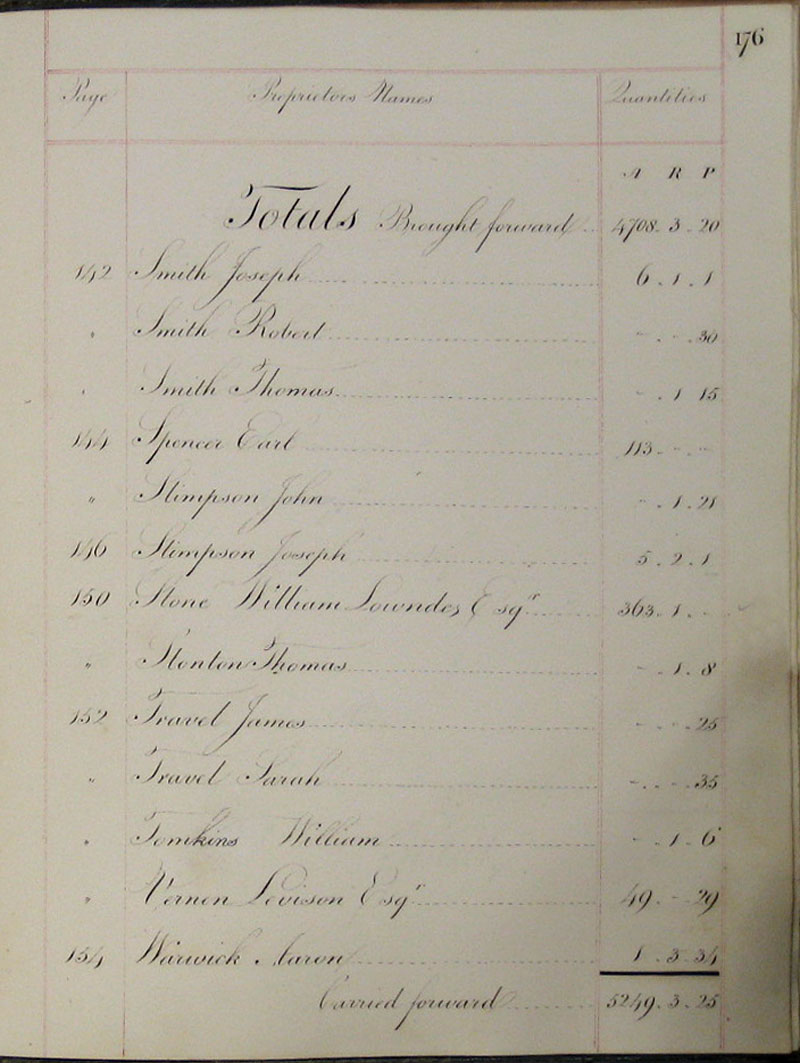 176
Page Proprietors Names Quantities
A R P
Totals Brought forward 4708 . 3 . 20
142 Smith Joseph 6 . 1 . 1
" Smith Robert - . - . 30
" Smith Thomas - . 1 . 15
144 Spencer Earl 113 . - . -
" Stimpson John - . 1 . 21
146 Stimpson Joseph 5 . 2 . 1
150 Stone William Lowndes Esqr 363 . 1 . -
" Stonton Thomas - . 1 . 8
152 Travel James - . - . 25
" Travel Sarah - . - . 35
" Tomkins William - . 1 . 6
" Vernon Levison Esqr 49 . - . 29
154 Warwick Aaron 1 . 3 . 34
Carried forward 5249 . 3 . 25